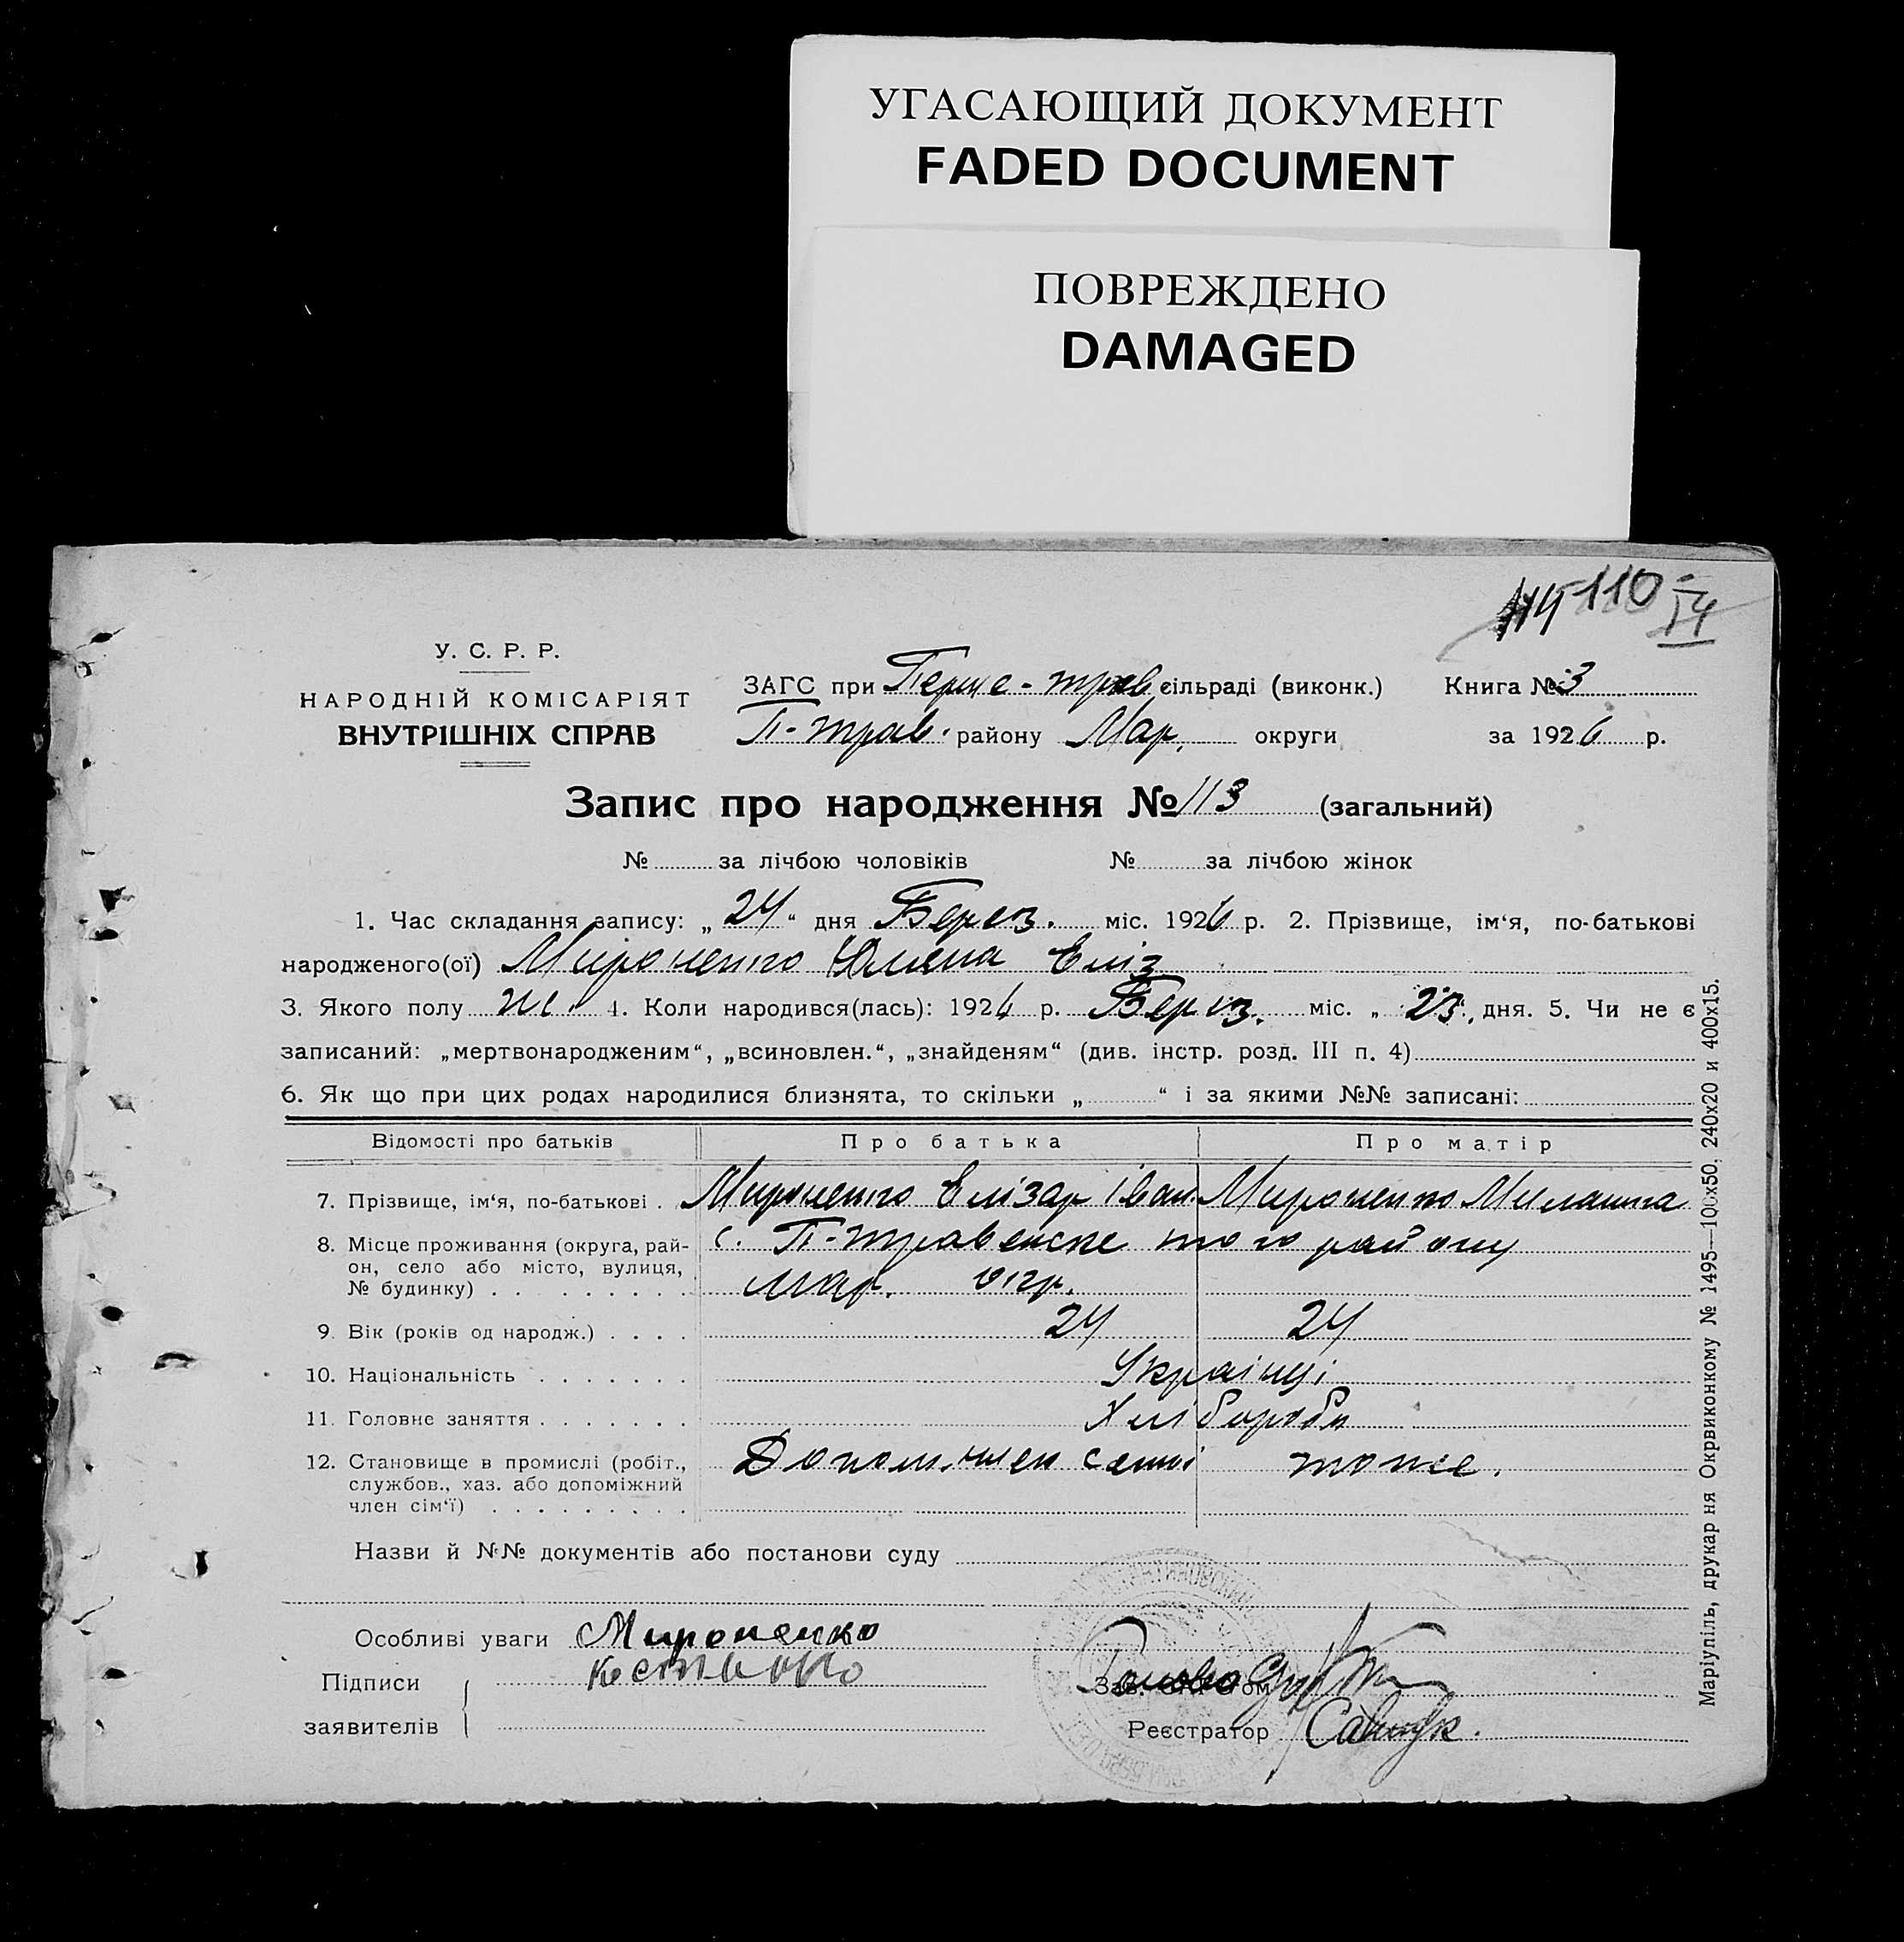 УГАСАЮЩИЙ ДОКУМЕНТ
FADED DOCUMENT
ПОВРЕЖДЕНО
DAMAGED
110
У. С. Р. Р.
НАРОДНІЙ КОМІСАРІЯТ
ВНУТРІШНІХ СПРАВ
ЗАГС при Перше-трав сільраді (виконк.) Книга № 3
П-трав. району Мар. округи за 1926 р.
Запис про народження № 113 (загальний)
№ за лічбою чоловіків № за лічбою жінок
1. Час складання запису: „ 24 “ дня Берез. міс. 1926 р. 2. Прізвище, ім‘я, по-батькові
народженого(ої) Мироненко Еліз
3. Якого полу ж. 4. Коли народився(лась): 1926 р. Берез. міс. „ 23 „ дня. 5. Чи не є
записаний: „мертвонародженим“, „всиновлен.“, „знайденям“ (див. інстр. розд. III п. 4)
6. Як що при цих родах народилися близнята, то скільки „ “ і за якими №№ записані:
Відомості про батьків Про батька Про матір
7. Прізвище, ім‘я, по-батькові . Мироненко Елізар Іван. Мироненко Миланка
8. Місце проживання (округа, рай-
он, село або місто, вулиця,
№ будинку) . . . . . . . .
с. П-травенске того району
мар. окр.
9. Вік (років од народж.) . . . . 24 24
10. Національність . . . . . . . Українці
11. Головне заняття . . . . . . . Хлібороби
12. Становище в промислі (робіт.,
службов., хаз. або допоміжний
член сім‘ї) . . . . . . . . .
Допом. член семьі тоже.
Назви й №№ документів або постанови суду
Особливі уваги Мироненко
Підписи
заявителів
Зав. Голова
Реєстратор Савчук.
Маріупіль, друкарня Окрвиконкому № 1495—100х50. 240х20 и 400х15.